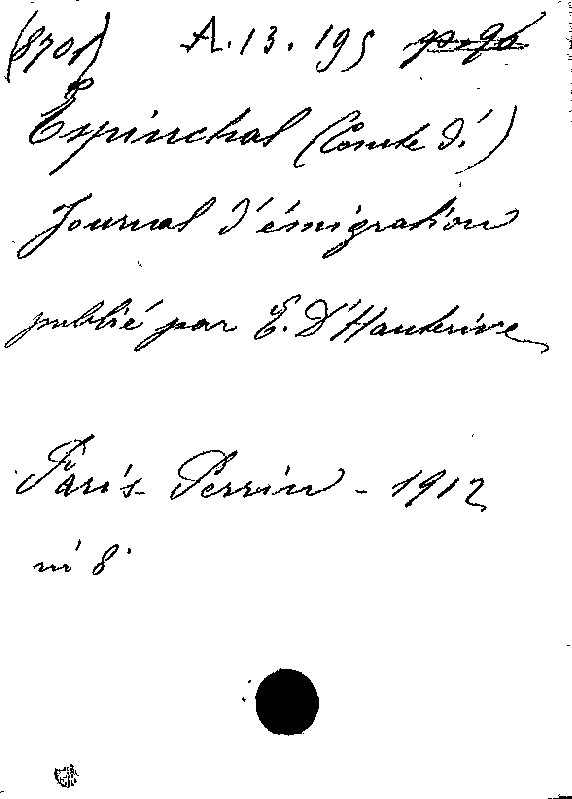 (8701) A.13.195
Espinchal (Comte d')
Journal d'émigration
publié par E. D'Hauterive
Paris - Perrin - 1912
in 8°